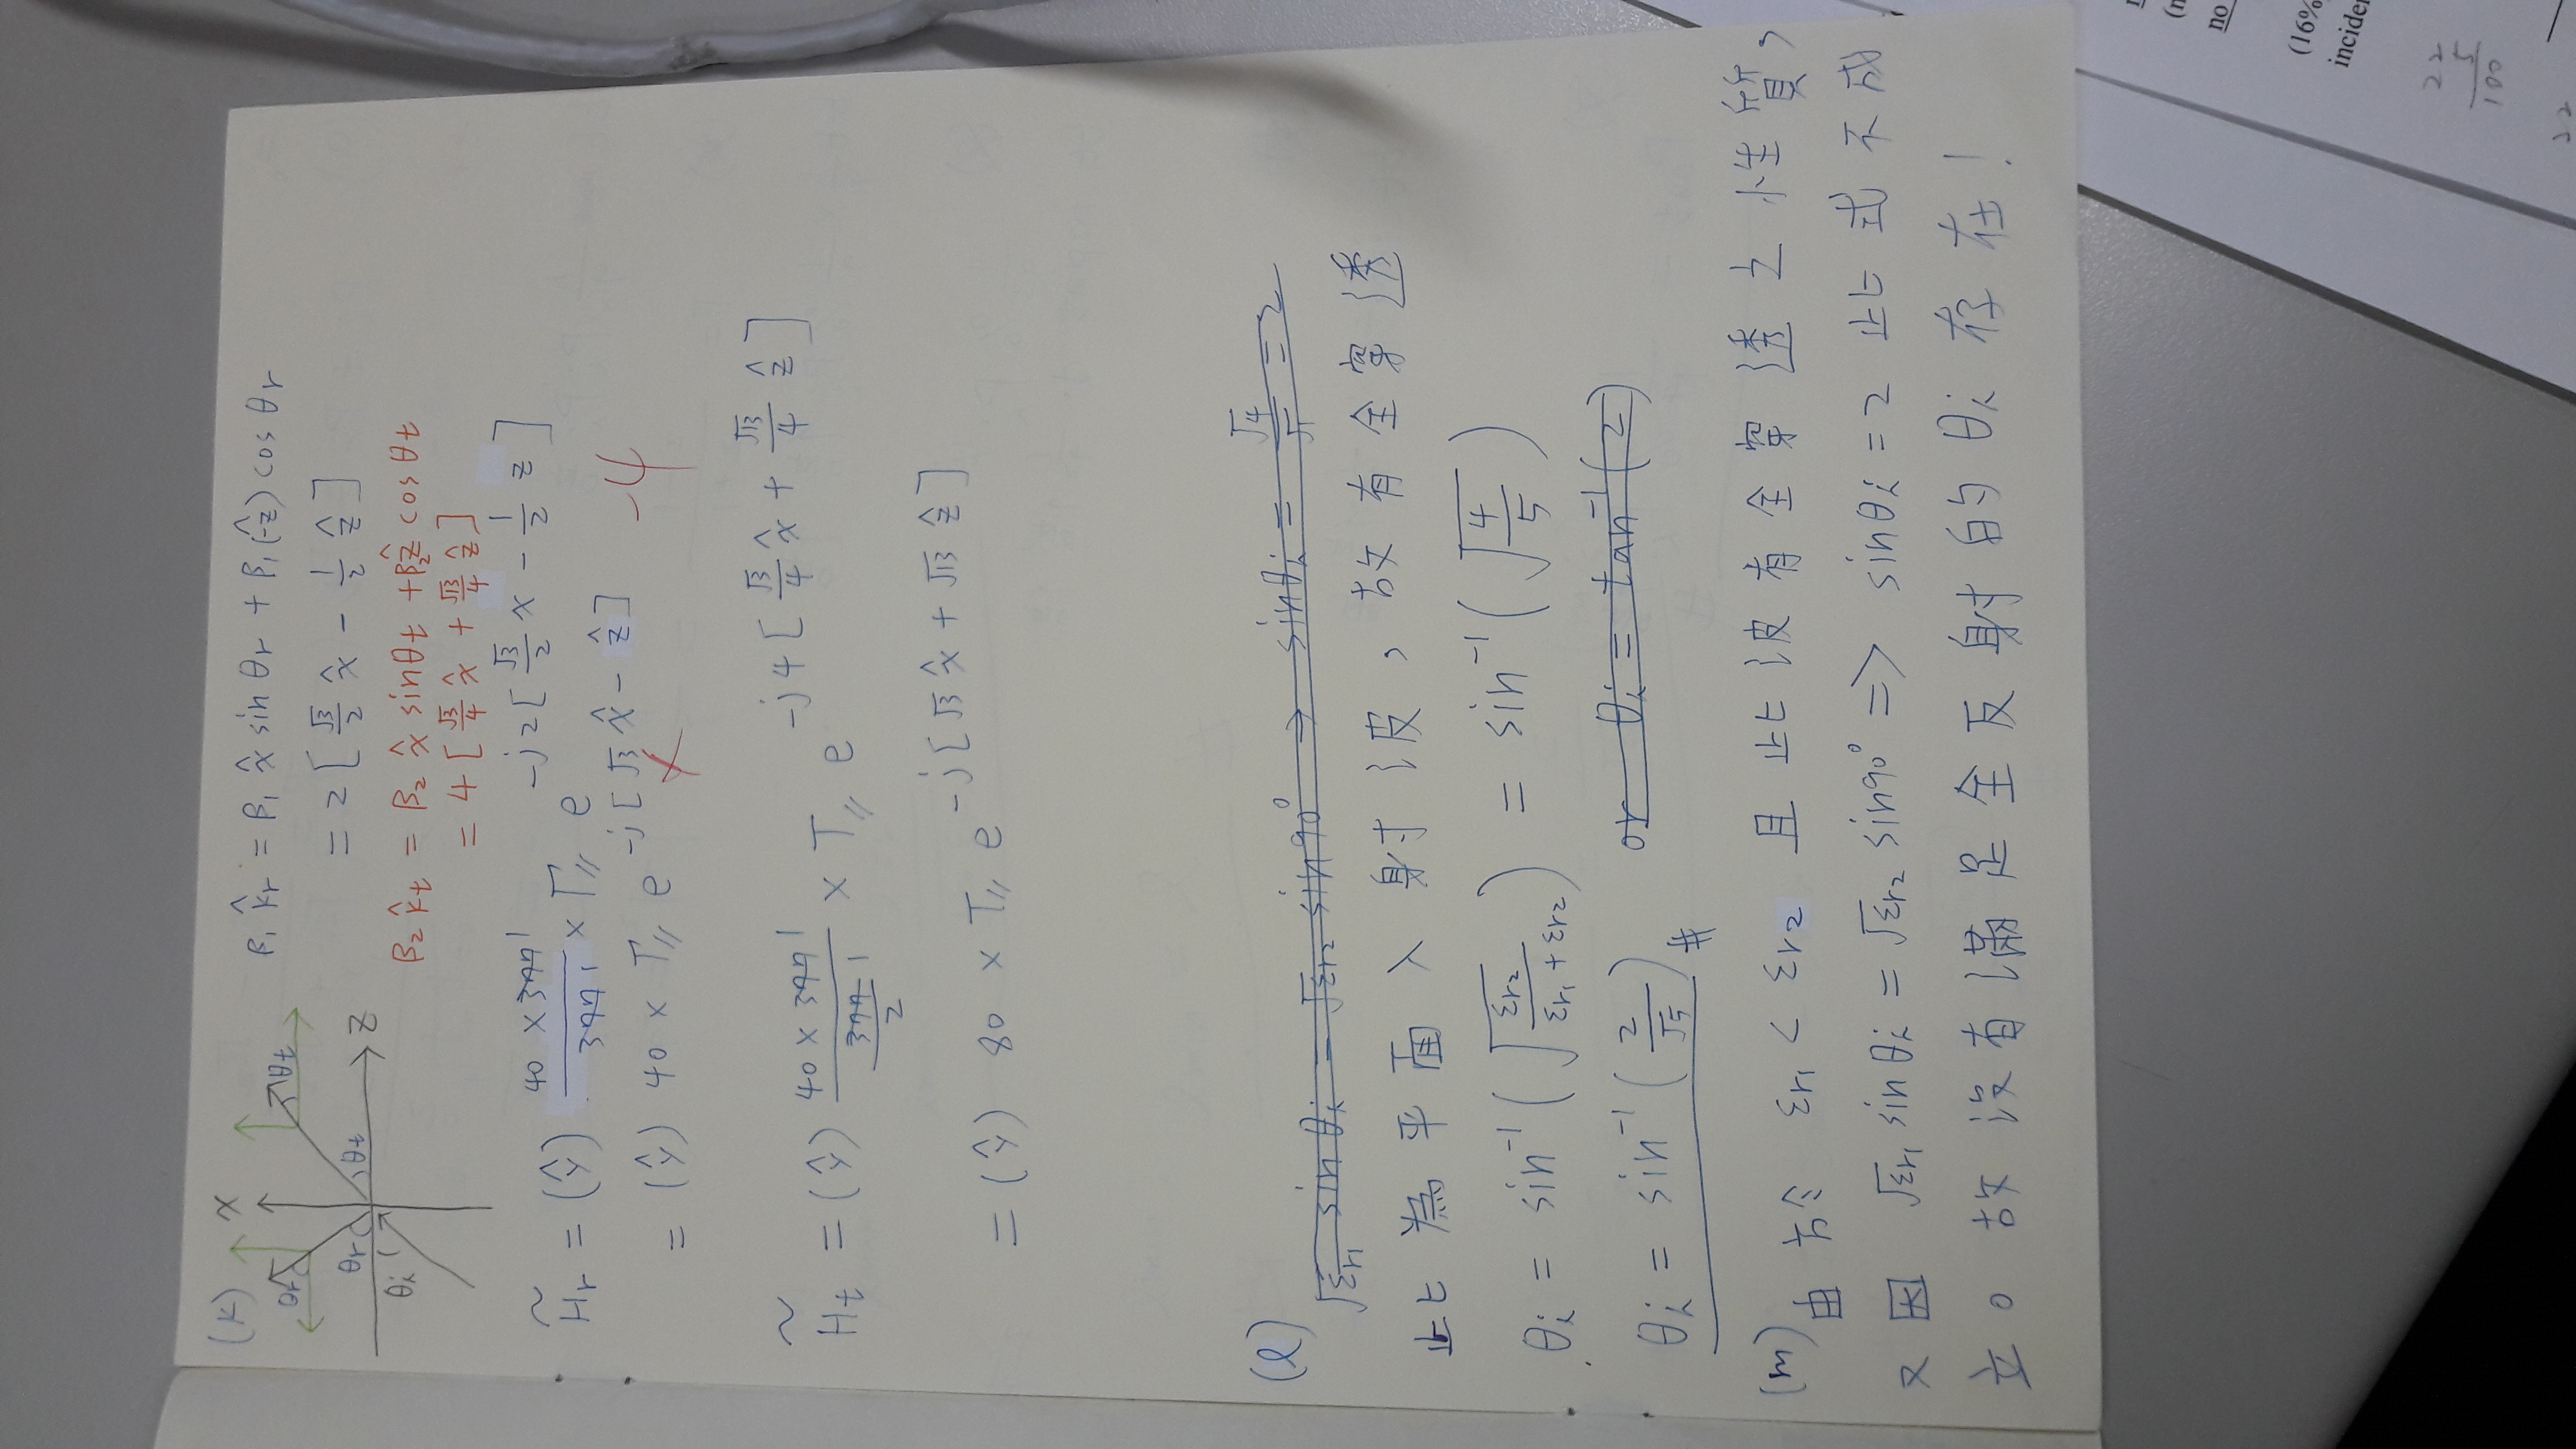 (k)
x
z
θr
θt
θr
θt
θi
β₁ k̂r = β₁ x̂ sin θr + β₁(-ẑ) cos θr
= 2 [ √3/2 x̂ - 1/2 ẑ ]
β₂ k̂t = β₂ x̂ sinθt + β₂ẑ cos θt
= 4 [ √3/4 x̂ + √13/4 ẑ ]
H̃r = (ŷ) (40 × 377 1)/(377 1) × Γ// e^{-j2[ √3/2 x - 1/2 z ]}
= (ŷ) 40 × Γ// e^{-j[ √3 x̂ - ẑ ]}
-4
H̃t = (ŷ) (40 × 377 1)/(377 1/2) × T// e^{-j4[ √3/4 x̂ + √13/4 ẑ ]}
= (ŷ) 80 × T// e^{-j[ √3 x̂ + √13 ẑ ]}
(l)
√εr₁ sin θi = √εr₂ sin90° → sinθi = √4/√1 = 2
此為平面入射波,故有全穿透
θi = sin⁻¹( √(εr₂/(εr₁+εr₂)) ) = sin⁻¹( √(4/5) )
θi = sin⁻¹( 2/√5 ) # or θi = tan⁻¹(2)
(m) 由於 εr₁ < εr₂ 且此波有全穿透之性質,
又因 √εr₁ sin θi = √εr₂ sin90° => sinθi = 2 此式不成
立。故沒有滿足全反射的 θi 存在!
(n
no
(16%
incide
22
5
100
22